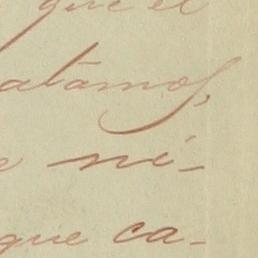 que el
atamos,
e ni-
que ca-